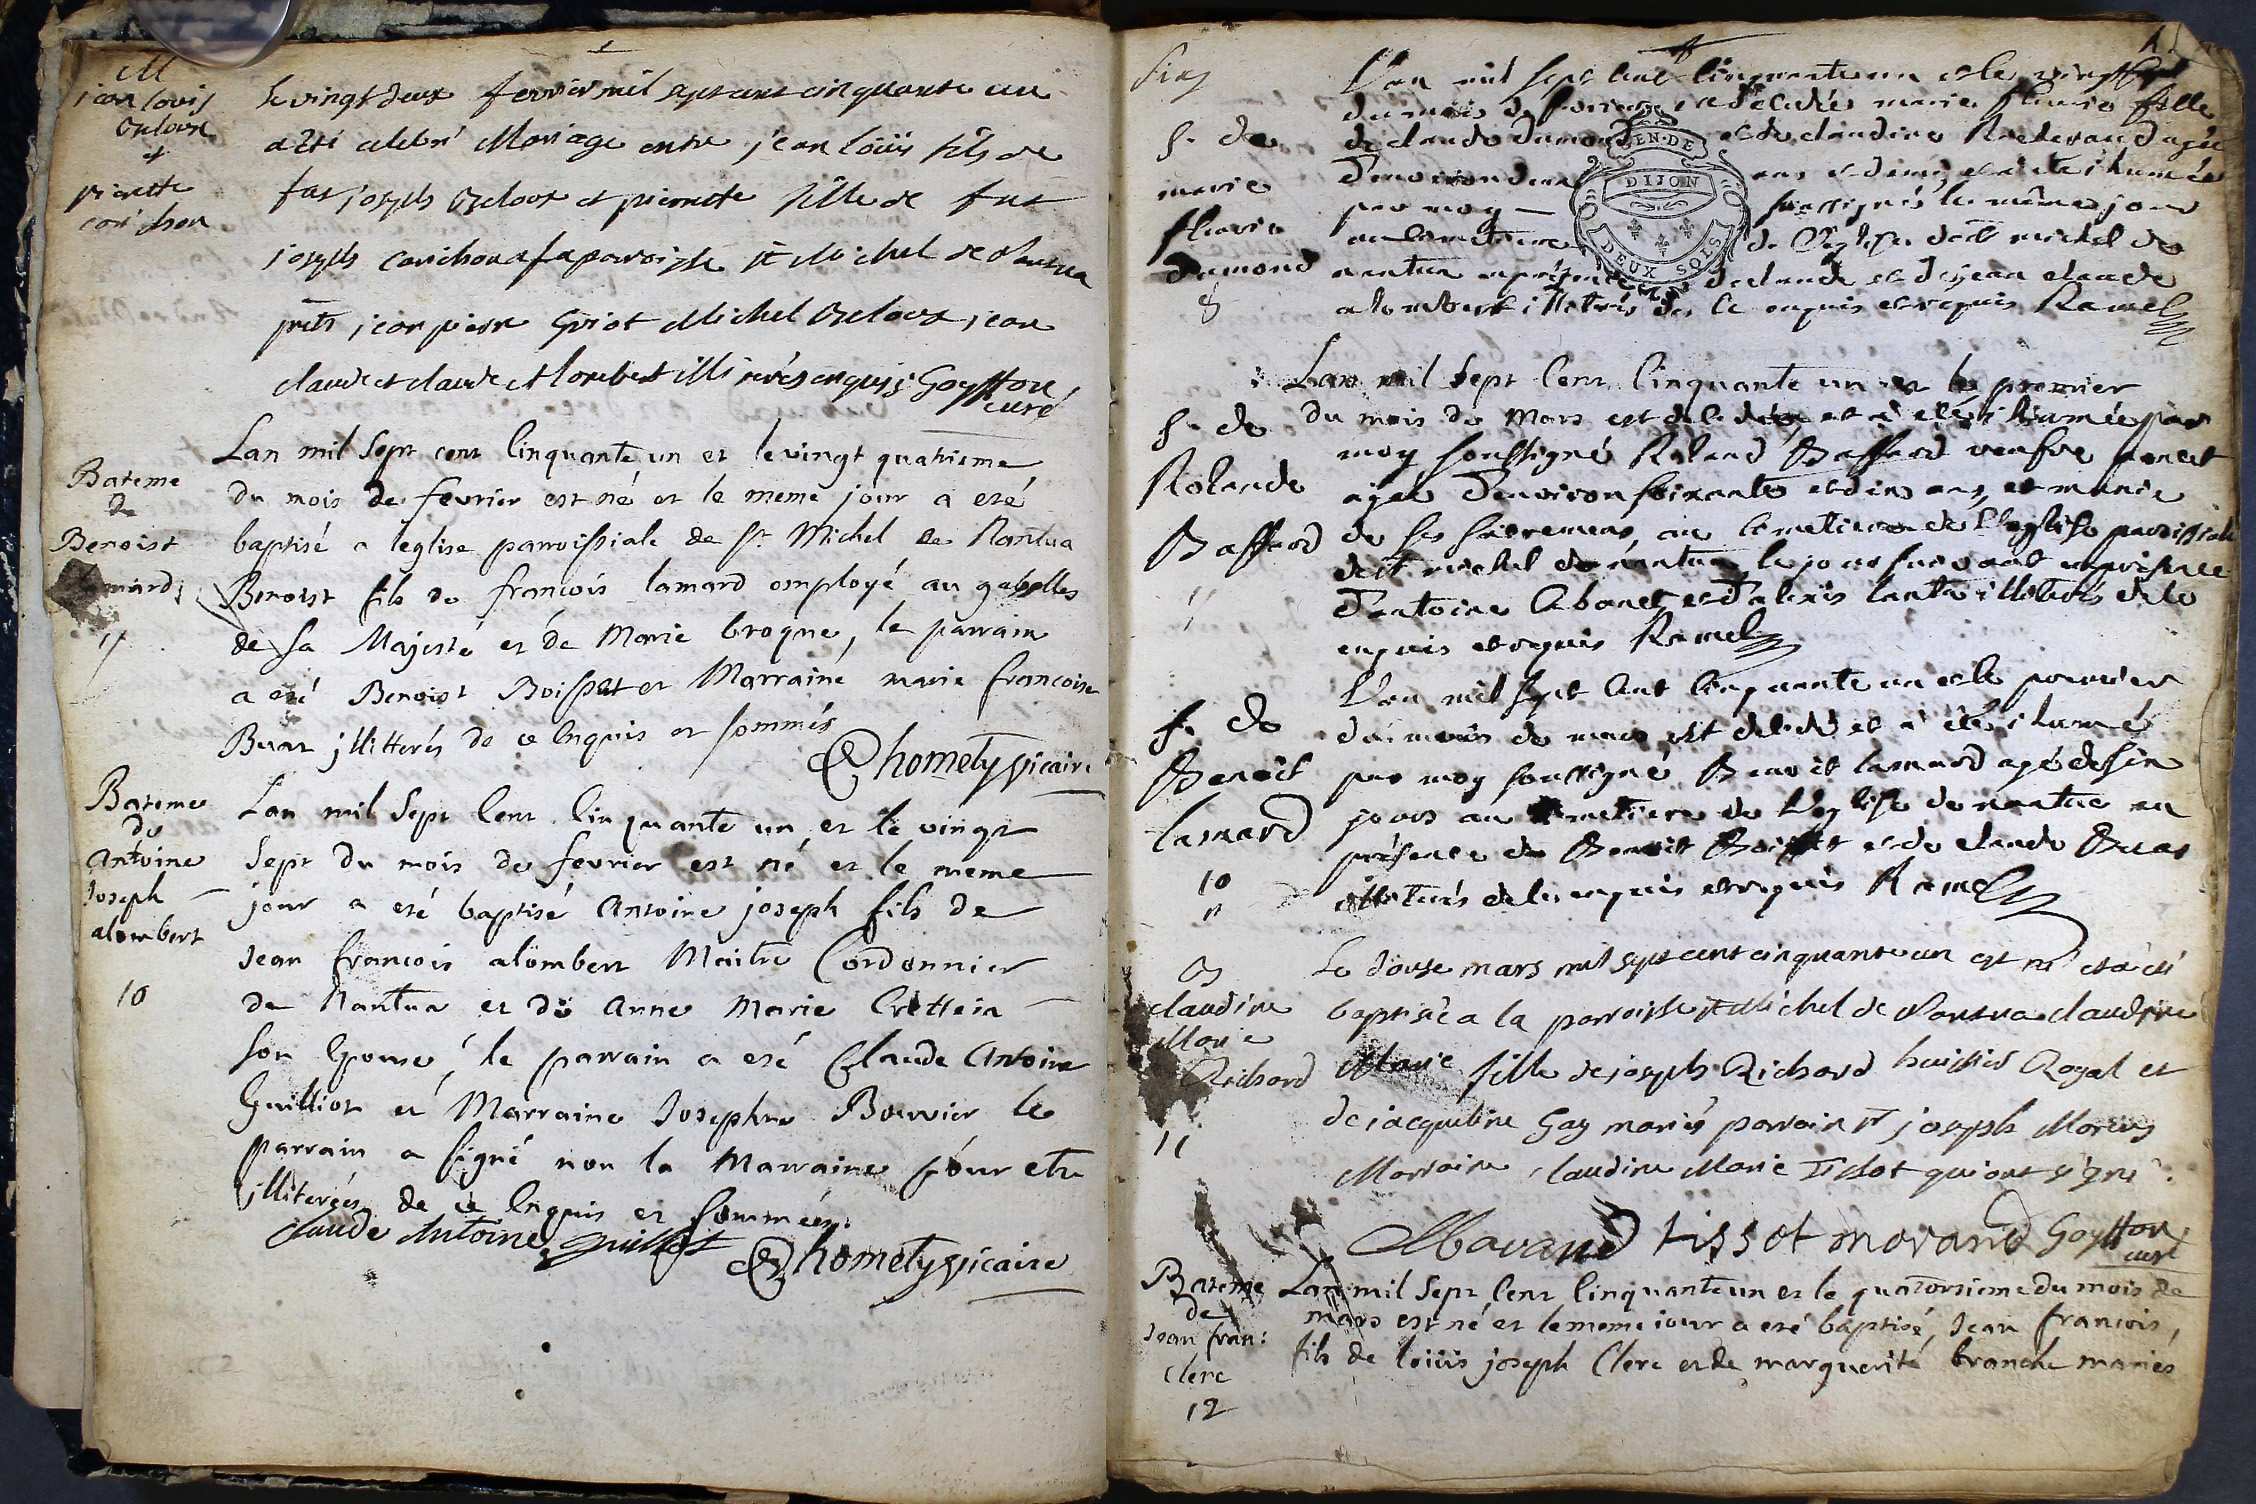 M
jean louis
&
pierrette
corichon
Le vingt deux fevrier mil sept cent cinquante un
a été celebré Mariage entre jean Loüis fils de
feu joseph et pierrette fille de feu
joseph corichon a la paroisse st Michel de Nantua
pnts jean pierre Guiot Michel jean
claude et claude Alombert illiterés enquis Goyffon
curé
Bateme
de
Benoist
Lamard
9
Lan mil Sept cent Cinquante un et le vingt quatrieme
du mois de fevrier est né et le meme jour a eté
baptisé a leglise parroissiale de St Michel de Nantua
Benoist fils de francois lamard employé au gabelles
de Sa Majesté et de Marie brogne, le parrain
a eté Benoist Boisset et Marraine marie francoise
Buat jllitterés de ce Enquis et sommés
Chomety vicaire
Bateme
de
Antoine
Joseph
alombert
10
Lan mil Sept Cent Cinquante un et le vingt
Sept du mois de fevrier est né et le meme
jour a eté baptisé Antoine joseph fils de
Jean francois alombert Maitre Cordonnier
de Nantua et de Anne Marie
Son Epouse, le parrain a eté Claude Antoine
Guilliot et Marraine Josephte Bouvier le
parrain a signé non la Marraine pour etre
jlliterés de ce Enquis et Sommées
Claude Antoine guilliot Chomety vicaire
GEN. DE
DIJON
DEUX SOLS
S. de
marie
fleurie
Dumond
8
L'an mil sept cent cinquante un et le vingt sept
du mois de fevrier est decedée marie fleurie fille
de claude Dumond et de claudine agée
d'environ deux ans et demi et a eté ihumée
par moy soussigné le même jour
au cemetiere de l'eglise de st michel de
nantua en présence de claude et de jean claude
alombert illeterés de ce enquis et requis Ramel
S. de
Rolande
Baffard
9
Lan mil Sept Cent Cinquante un et le premier
du mois de Mars est decedée et a eté ihumée par
moy soussigné Roland Baffard
agée d'environ soixante et dix ans, et munie
de ses sacremens, au cemetiere de l'eglise paroissiale
de st michel de nantua le jour suivant en présence
d'antoine et d'alexis illeterés de ce
enquis et requis Ramel
S. de
Benoit
lamard
10
L'an mil sept cent cinquante un et le premier
du mois de mars est decedé et a eté ihumé
par moy soussigné Benoit lamard agé de six
jours au cemetiere de l'eglise de nantua en
présence de Benoit Boisset et de claude Buat
illeterés de ce enquis et requis Ramel
B
claudine
Marie
Richard
11
Le douse mars mil sept cent cinquante un est né et a eté
baptisée a la parroisse st Michel de Nantua claudine
Marie fille de joseph Richard huissier Royal et
de jacqueline Gay mariés parrain sr joseph
Marraine claudine Marie Tissot qui ont signé
tissot morand Goyffon
curé
Bateme
de
Jean fran:
Clerc
12
Lan mil Sept Cent Cinquante un et le quatorsieme du mois de
mars est né et le meme jour a eté baptisé, Jean francois,
fils de loüis joseph Clerc et de marguerite branche mariés